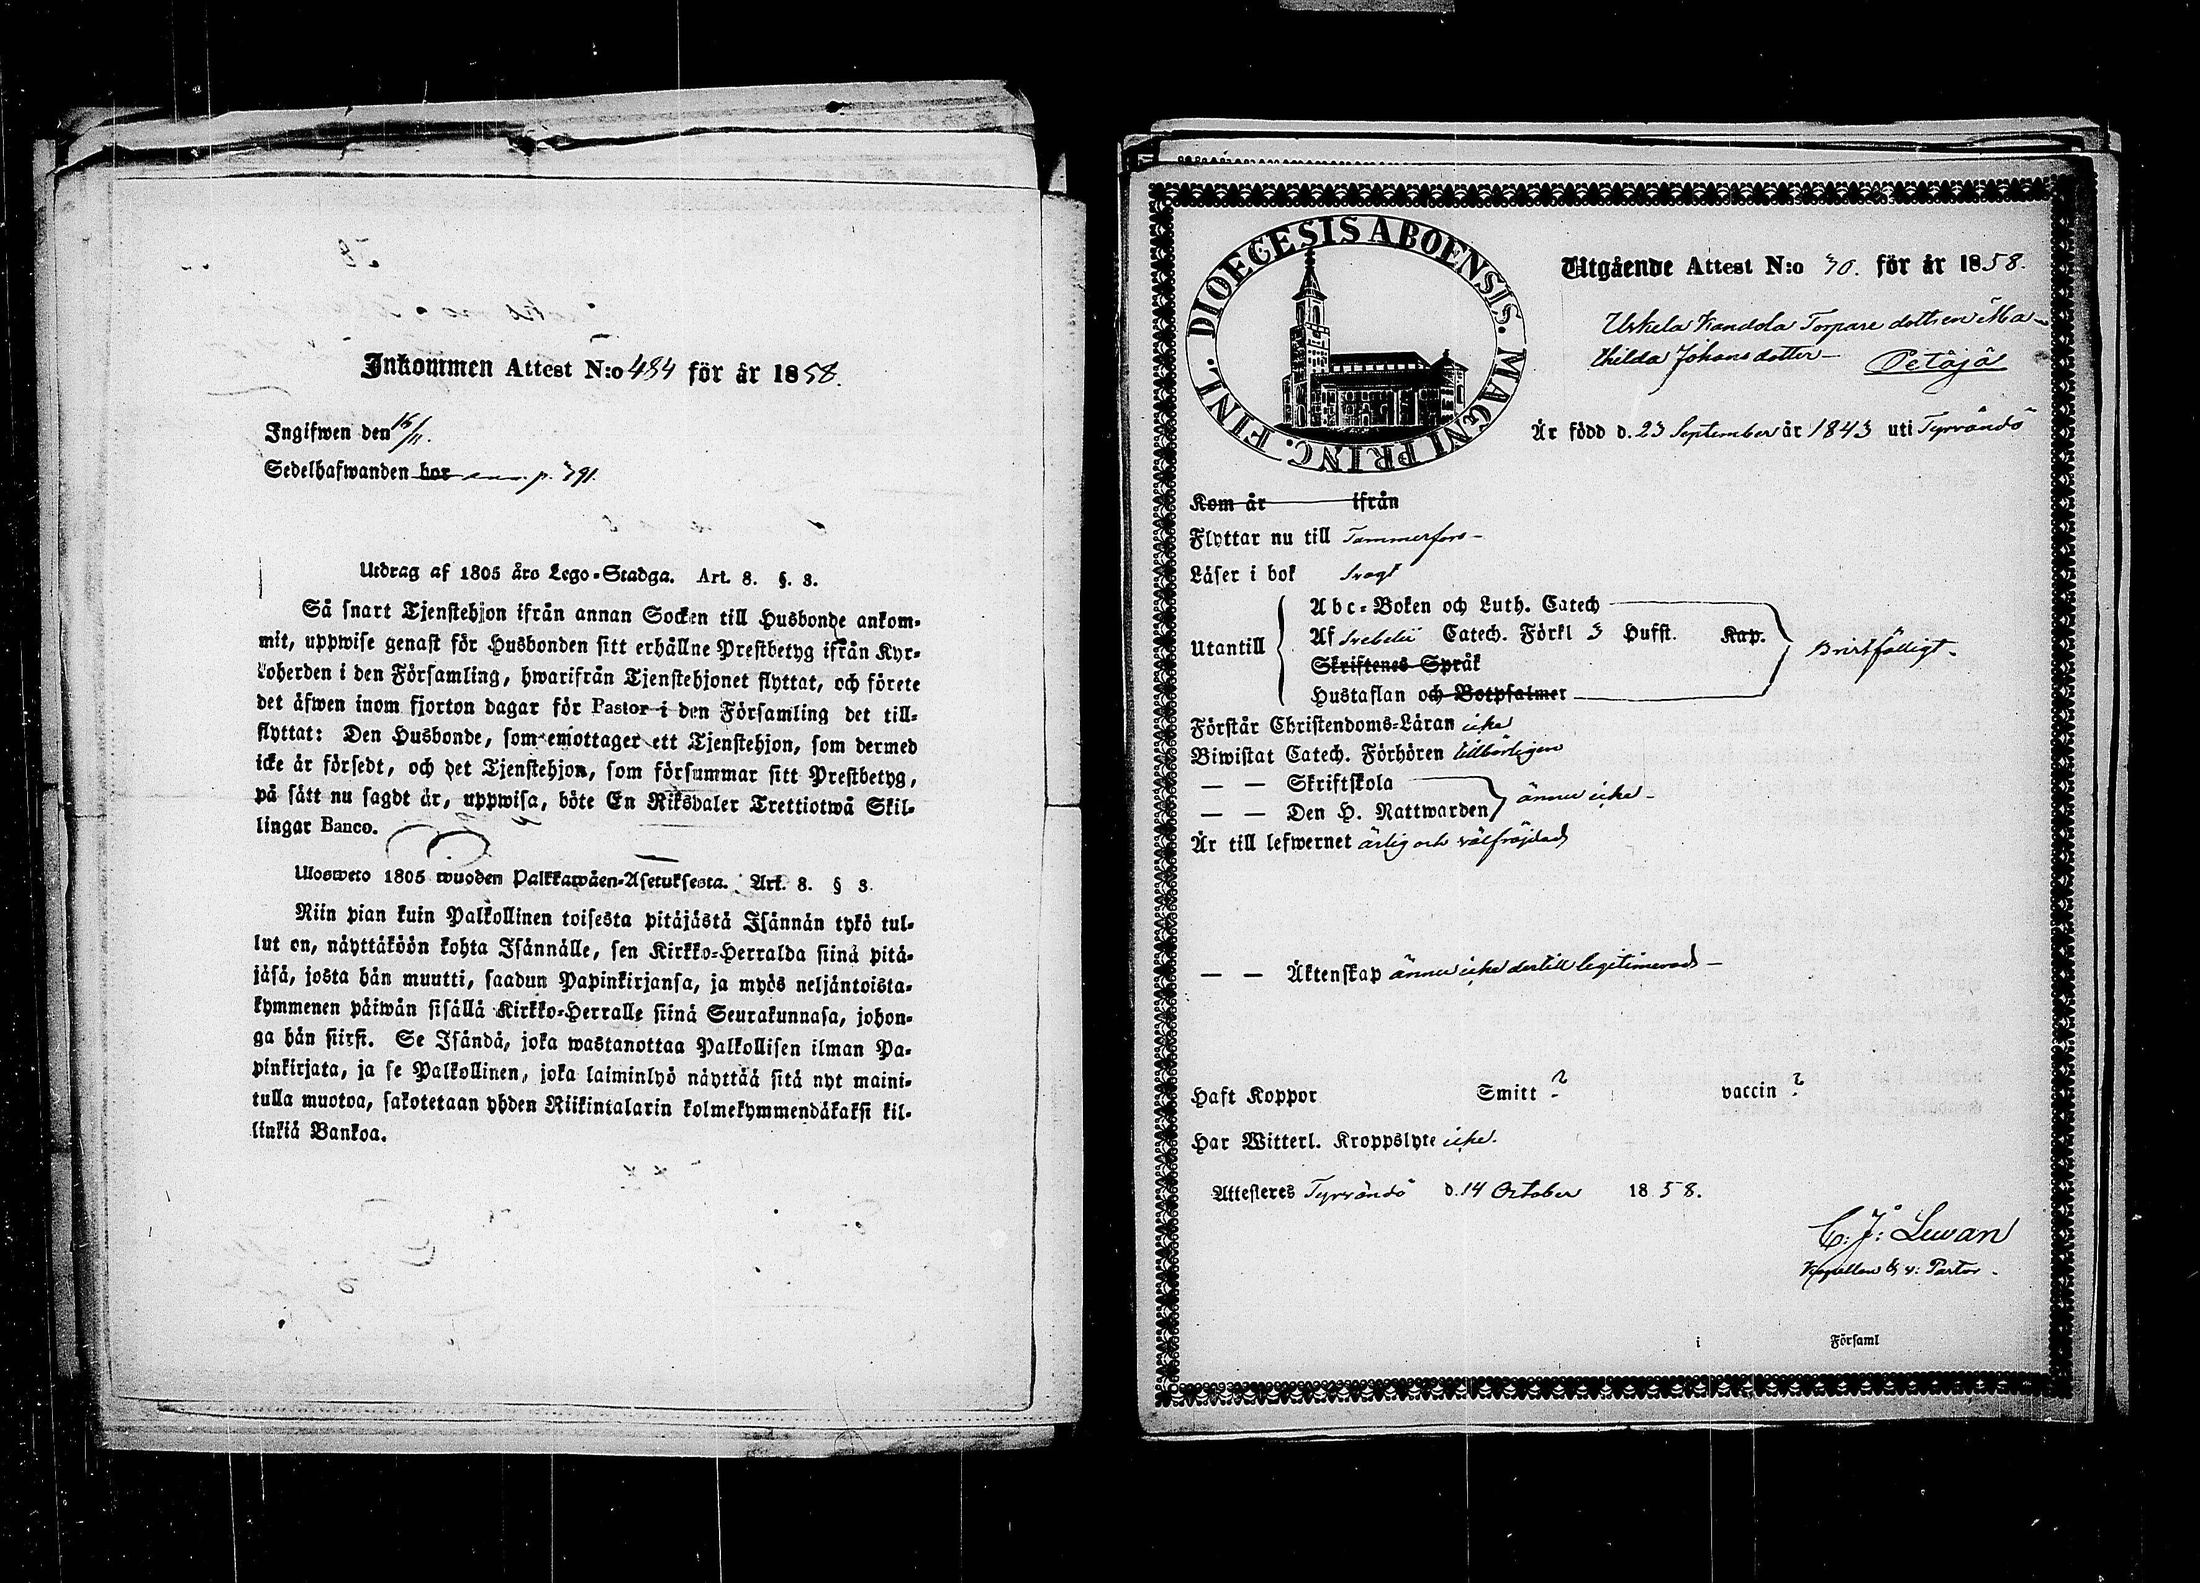 Inkommen Attest N:o 484 för år 1858.
Ingifwen den 16/11.
Sedelhafwanden bor p. 791.
Utdrag af 1805 års Lego-Stadga. Art. 8. §. 3.
Så snart Tjenstehjon ifrån annan Socken till Husbonde ankom-
mit, uppwise genast för Husbonden sitt erhållne Prestbetyg ifrån Kyr-
koherden i den Församling, hwarifrån Tjenstehjonet flyttat, och förete
det äfwen inom fjorton dagar för Pastor i den Församling det till-
flyttat: Den Husbonde, som emottager ett Tjenstehjon, som dermed
icke är försedt, och det Tjenstehjon, som försummar sitt Prestbetyg,
på sätt nu sagdt är, uppwisa, böte En Riksdaler Trettiotwå Skil-
lingar Banco.
Ulosweto 1805 wuoden Palkkawäen-Asetuksesta. Art. 8. § 3.
Niin pian kuin Palkollinen toisesta pitäjästä Isännän tykö tul-
lut on, näyttäköön kohta Isännälle, sen Kirkko-Herralda siinä pitä-
jäsä, josta hän muutti, saadun Papinkirjansa, ja myös neljäntoista-
kymmenen päiwän sisällä Kirkko-Herralle siinä Seurakunnasa, johon-
ga hän siirsi. Se Isändä, joka wastanottaa Palkollisen ilman Pa-
pinkirjata, ja se Palkollinen, joka laiminlyö näyttää sitä nyt maini-
tulla muotoa, sakotetaan yhden Riikintalarin kolmekymmendäkaksi kil-
linkiä Bankoa.
DIOECESIS ABOENSIS. MAGNI PRINC. FINL.
Utgående Attest N:o 70. för år 1858.
Uskela Kandola Torpare dottren Ma-
thilda Johansdotter Petäjä
Är född d. 23 September år 1843 uti Tyrvändö
Kom år ifrån
Flyttar nu till Tammerfors
Läser i bok Svagt
Utantill
Abc-Boken och Luth. Catech
Af Svebelii Catech. Förkl 3 Hufst. Kap.
Skriftenes Språk
Hustaflan och Botpsalmer
Bristfälligt
Förstår Christendoms-Läran icke
Biwistat Catech. Förhören tillbörligen
— — Skriftskola
— — Den H. Nattwarden ännu icke
Är till lefwernet ärlig och välfräjdad
— — Äktenskap ännu icke dertill legitimerad
Haft Koppor Smitt ? vaccin ?
Har Witterl. Kroppslyte icke.
Attesteres Tyrvändö d. 14 October 1858.
C: J: Levan
Kapellan & v: Pastor
i Församl